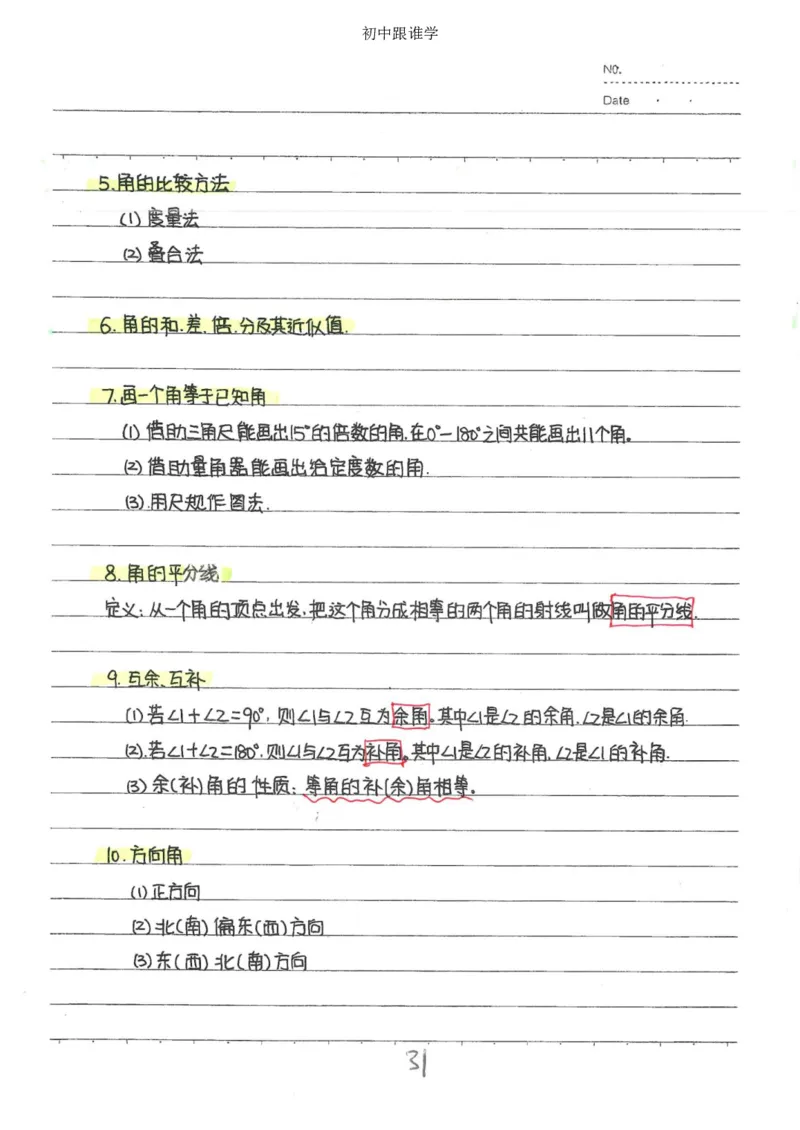 初中跟谁学
No.
Date . .
5.角的比较方法
(1) 度量法
(2) 叠合法
6.角的和.差.倍.分及其近似值.
7.画一个角等于已知角
(1) 借助三角尺能画出15°的倍数的角.在0°-180°之间共能画出11个角。
(2) 借助量角器能画出给定度数的角.
(3).用尺规作图法.
8.角的平分线
定义:从一个角的顶点出发,把这个角分成相等的两个角的射线叫做角的平分线.
9.互余、互补
(1)若∠1+∠2=90°,则∠1与∠2互为余角。其中∠1是∠2的余角,∠2是∠1的余角.
(2).若∠1+∠2=180°,则∠1与∠2互为补角。其中∠1是∠2的补角,∠2是∠1的补角.
(3)余(补)角的性质:等角的补(余)角相等。
10.方向角
(1)正方向
(2)北(南)偏东(西)方向
(3)东(西)北(南)方向
31